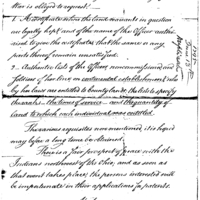 War is obliged to request:
1. A certificate when the land warrants in question
are legally kept and of the name of the Officer autho-
rized to give the certificates that the same or any
parts thereof remain unsatisfied.
2. Authentic lists of the Officers, noncommissioned and
Soldiers of the line on continental establishment who
by law are entitled to bounty lands, the lists to specify
the ranks, the terms of service and the quantity of
land to which each individual was entitled.
The various requisites now mentioned, it is hoped
may before a long time be obtained.
There is a fair prospect of peace with the
Indians northwest of the Ohio, and as soon as
that event takes place, the persons interested will
be importunate in their applications for patents.